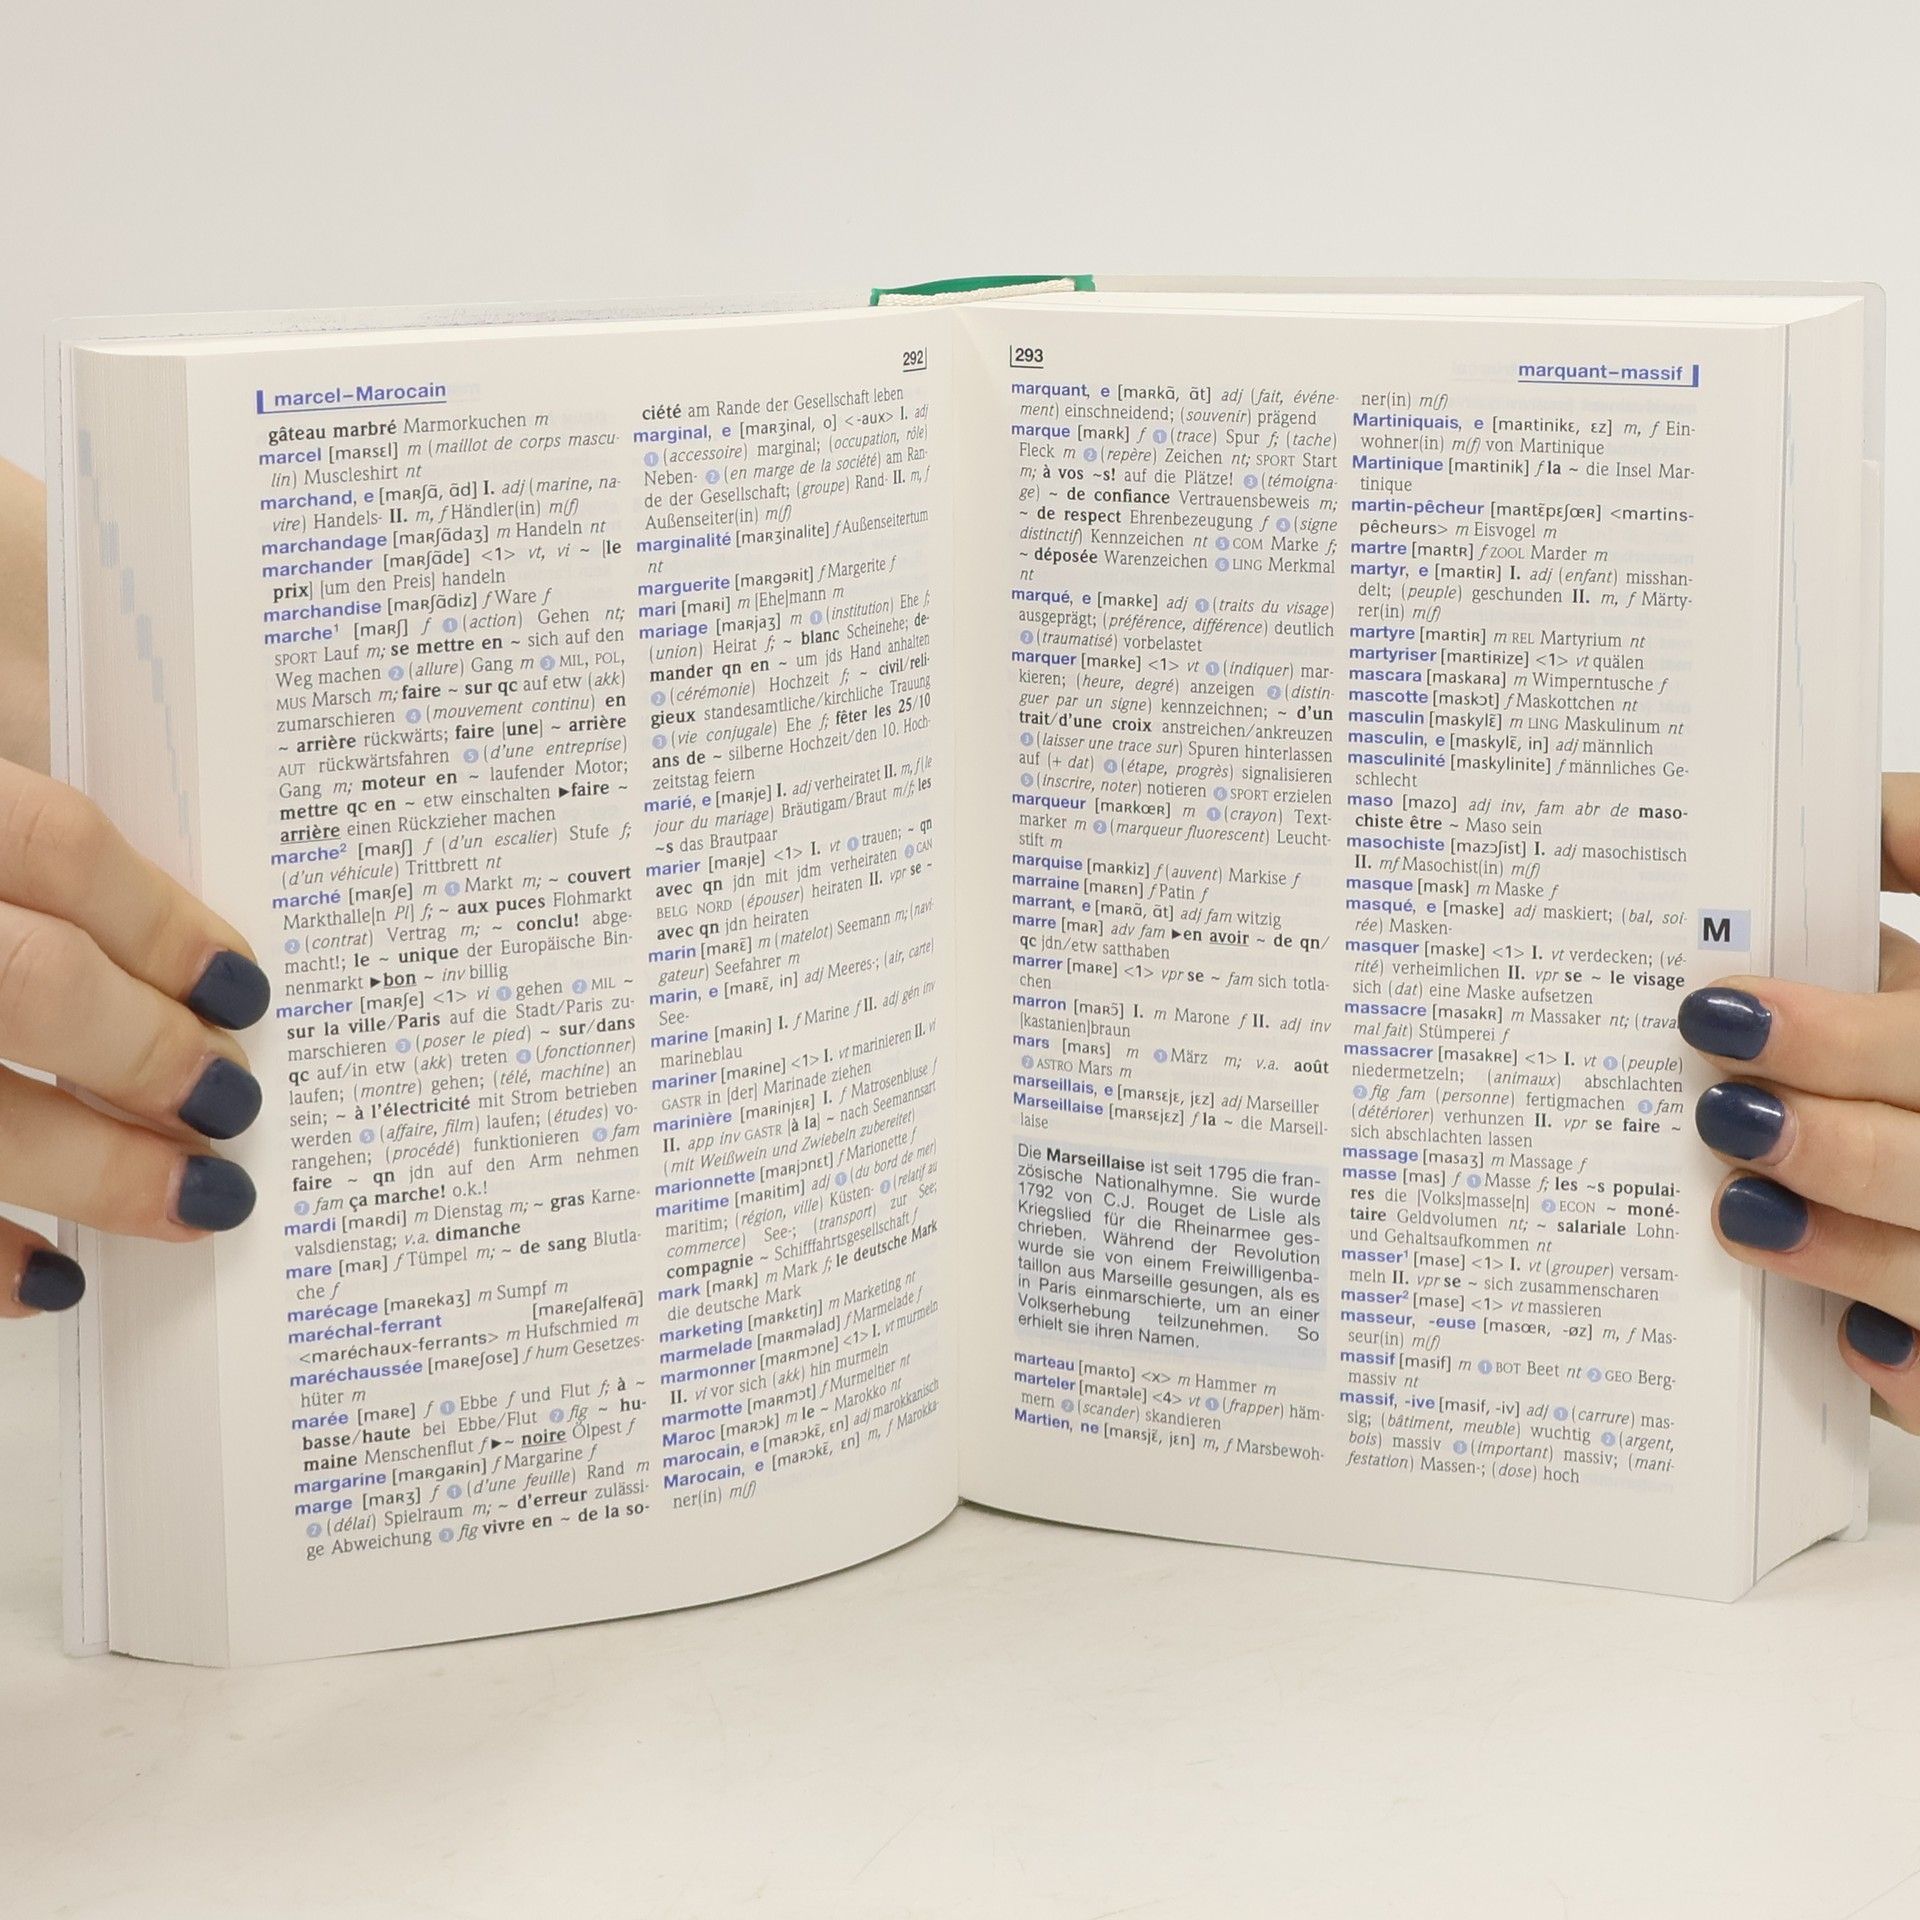 292
marcel–Marocain
gâteau marbré Marmorkuchen m
marcel [maʀsɛl] m (maillot de corps mascu-
lin) Muscleshirt nt
marchand, e [maʀʃɑ̃, ɑ̃d] I. adj (marine, na-
vire) Handels- II. m, f Händler(in) m(f)
marchandage [maʀʃɑ̃daʒ] m Handeln nt
marchander [maʀʃɑ̃de] <1> vt, vi ~ [le
prix] [um den Preis] handeln
marchandise [maʀʃɑ̃diz] f Ware f
marche¹ [maʀʃ] f ❶ (action) Gehen nt;
SPORT Lauf m; se mettre en ~ sich auf den
Weg machen ❷ (allure) Gang m ❸ MIL, POL,
MUS Marsch m; faire ~ sur qc auf etw (akk)
zumarschieren ❹ (mouvement continu) en
~ arrière rückwärts; faire [une] ~ arrière
AUT rückwärtsfahren ❺ (d'une entreprise)
Gang m; moteur en ~ laufender Motor;
mettre qc en ~ etw einschalten ▶faire ~
arrière einen Rückzieher machen
marche² [maʀʃ] f (d'un escalier) Stufe f;
(d'un véhicule) Trittbrett nt
marché [maʀʃe] m ❶ Markt m; ~ couvert
Markthalle[n Pl] f; ~ aux puces Flohmarkt
❷ (contrat) Vertrag m; ~ conclu! abge-
macht!; le ~ unique der Europäische Bin-
nenmarkt ▶bon ~ inv billig
marcher [maʀʃe] <1> vi ❶ gehen ❷ MIL ~
sur la ville/Paris auf die Stadt/Paris zu-
marschieren ❸ (poser le pied) ~ sur/dans
qc auf/in etw (akk) treten ❹ (fonctionner)
laufen; (montre) gehen; (télé, machine) an
sein; ~ à l'électricité mit Strom betrieben
werden ❺ (affaire, film) laufen; (études) vo-
rangehen; (procédé) funktionieren ❻ fam
faire ~ qn jdn auf den Arm nehmen
❼ fam ça marche! o.k.!
mardi [maʀdi] m Dienstag m; ~ gras Karne-
valsdienstag; v.a. dimanche
mare [maʀ] f Tümpel m; ~ de sang Blutla-
che f
marécage [maʀekaʒ] m Sumpf m
maréchal-ferrant [maʀeʃalfeʀɑ̃]
<maréchaux-ferrants> m Hufschmied m
maréchaussée [maʀeʃose] f hum Gesetzes-
hüter m
marée [maʀe] f ❶ Ebbe f und Flut f; à ~
basse/haute bei Ebbe/Flut ❷ fig ~ hu-
maine Menschenflut f ▶~ noire Ölpest f
margarine [maʀgaʀin] f Margarine f
marge [maʀʒ] f ❶ (d'une feuille) Rand m
❷ (délai) Spielraum m; ~ d'erreur zulässi-
ge Abweichung ❸ fig vivre en ~ de la so-
ciété am Rande der Gesellschaft leben
marginal, e [maʀʒinal, o] <-aux> I. adj
❶ (accessoire) marginal; (occupation, rôle)
Neben- ❷ (en marge de la société) am Ran-
de der Gesellschaft; (groupe) Rand- II. m, f
Außenseiter(in) m(f)
marginalité [maʀʒinalite] f Außenseitertum
nt
marguerite [maʀgəʀit] f Margerite f
mari [maʀi] m [Ehe]mann m
mariage [maʀjaʒ] m ❶ (institution) Ehe f;
(union) Heirat f; ~ blanc Scheinehe; de-
mander qn en ~ um jds Hand anhalten
❷ (cérémonie) Hochzeit f; ~ civil/reli-
gieux standesamtliche/kirchliche Trauung
❸ (vie conjugale) Ehe f; fêter les 25/10
ans de ~ silberne Hochzeit/den 10. Hoch-
zeitstag feiern
marié, e [maʀje] I. adj verheiratet II. m, f (le
jour du mariage) Bräutigam/Braut m/f; les
~s das Brautpaar
marier [maʀje] <1> I. vt ❶ trauen; ~ qn
avec qn jdn mit jdm verheiraten ❷ CAN
BELG NORD (épouser) heiraten II. vpr se ~
avec qn jdn heiraten
marin [maʀɛ̃] m (matelot) Seemann m; (navi-
gateur) Seefahrer m
marin, e [maʀɛ̃, in] adj Meeres-; (air, carte)
See-
marine [maʀin] I. f Marine f II. adj gén inv
marineblau
mariner [maʀine] <1> I. vt marinieren II. vi
GASTR in [der] Marinade ziehen
marinière [maʀinjɛʀ] I. f Matrosenbluse f
II. app inv GASTR [à la] ~ nach Seemannsart
(mit Weißwein und Zwiebeln zubereitet)
marionnette [maʀjɔnɛt] f Marionette f
maritime [maʀitim] adj ❶ (du bord de mer)
maritim; (région, ville) Küsten- ❷ (relatif au
commerce) See-; (transport) zur See;
compagnie ~ Schifffahrtsgesellschaft f
mark [maʀk] m Mark f; le deutsche Mark
die deutsche Mark
marketing [maʀkɛtiŋ] m Marketing nt
marmelade [maʀməlad] f Marmelade f
marmonner [maʀmɔne] <1> I. vt murmeln
II. vi vor sich (akk) hin murmeln
marmotte [maʀmɔt] f Murmeltier nt
Maroc [maʀɔk] m le ~ Marokko nt
marocain, e [maʀɔkɛ̃, ɛn] adj marokkanisch
Marocain, e [maʀɔkɛ̃, ɛn] m, f Marokka-
ner(in) m(f)
293
marquant–massif
marquant, e [maʀkɑ̃, ɑ̃t] adj (fait, événe-
ment) einschneidend; (souvenir) prägend
marque [maʀk] f ❶ (trace) Spur f; (tache)
Fleck m ❷ (repère) Zeichen nt; SPORT Start
m; à vos ~s! auf die Plätze! ❸ (témoigna-
ge) ~ de confiance Vertrauensbeweis m;
~ de respect Ehrenbezeugung f ❹ (signe
distinctif) Kennzeichen nt ❺ COM Marke f;
~ déposée Warenzeichen ❻ LING Merkmal
nt
marqué, e [maʀke] adj ❶ (traits du visage)
ausgeprägt; (préférence, différence) deutlich
❷ (traumatisé) vorbelastet
marquer [maʀke] <1> vt ❶ (indiquer) mar-
kieren; (heure, degré) anzeigen ❷ (distin-
guer par un signe) kennzeichnen; ~ d'un
trait/d'une croix anstreichen/ankreuzen
❸ (laisser une trace sur) Spuren hinterlassen
auf (+ dat) ❹ (étape, progrès) signalisieren
❺ (inscrire, noter) notieren ❻ SPORT erzielen
marqueur [maʀkœʀ] m ❶ (crayon) Text-
marker m ❷ (marqueur fluorescent) Leucht-
stift m
marquise [maʀkiz] f (auvent) Markise f
marraine [maʀɛn] f Patin f
marrant, e [maʀɑ̃, ɑ̃t] adj fam witzig
marre [maʀ] adv fam ▶en avoir ~ de qn/
qc jdn/etw satthaben
marrer [maʀe] <1> vpr se ~ fam sich totla-
chen
marron [maʀɔ̃] I. m Marone f II. adj inv
[kastanien]braun
mars [maʀs] m ❶ März m; v.a. août
❷ ASTRO Mars m
marseillais, e [maʀsɛjɛ, jɛz] adj Marseiller
Marseillaise [maʀsɛjɛz] f la ~ die Marseil-
laise
Die Marseillaise ist seit 1795 die fran-
zösische Nationalhymne. Sie wurde
1792 von C.J. Rouget de Lisle als
Kriegslied für die Rheinarmee ges-
chrieben. Während der Revolution
wurde sie von einem Freiwilligenba-
taillon aus Marseille gesungen, als es
in Paris einmarschierte, um an einer
Volkserhebung teilzunehmen. So
erhielt sie ihren Namen.
marteau [maʀto] <x> m Hammer m
marteler [maʀtəle] <4> vt ❶ (frapper) häm-
mern ❷ (scander) skandieren
Martien, ne [maʀsjɛ̃, jɛn] m, f Marsbewoh-
ner(in) m(f)
Martiniquais, e [maʀtinikɛ, ɛz] m, f Ein-
wohner(in) m(f) von Martinique
Martinique [maʀtinik] f la ~ die Insel Mar-
tinique
martin-pêcheur [maʀtɛ̃pɛʃœʀ] <martins-
pêcheurs> m Eisvogel m
martre [maʀtʀ] f ZOOL Marder m
martyr, e [maʀtiʀ] I. adj (enfant) misshan-
delt; (peuple) geschunden II. m, f Märty-
rer(in) m(f)
martyre [maʀtiʀ] m REL Martyrium nt
martyriser [maʀtiʀize] <1> vt quälen
mascara [maskaʀa] m Wimperntusche f
mascotte [maskɔt] f Maskottchen nt
masculin [maskylɛ̃] m LING Maskulinum nt
masculin, e [maskylɛ̃, in] adj männlich
masculinité [maskylinite] f männliches Ge-
schlecht
maso [mazo] adj inv, fam abr de maso-
chiste être ~ Maso sein
masochiste [mazɔʃist] I. adj masochistisch
II. mf Masochist(in) m(f)
masque [mask] m Maske f
masqué, e [maske] adj maskiert; (bal, soi-
rée) Masken-
masquer [maske] <1> I. vt verdecken; (vé-
rité) verheimlichen II. vpr se ~ le visage
sich (dat) eine Maske aufsetzen
massacre [masakʀ] m Massaker nt; (trava
mal fait) Stümperei f
massacrer [masakʀe] <1> I. vt ❶ (peuple)
niedermetzeln; (animaux) abschlachten
❷ fig fam (personne) fertigmachen ❸ fam
(détériorer) verhunzen II. vpr se faire ~
sich abschlachten lassen
massage [masaʒ] m Massage f
masse [mas] f ❶ Masse f; les ~s populai-
res die [Volks]masse[n] ❷ ECON ~ moné-
taire Geldvolumen nt; ~ salariale Lohn-
und Gehaltsaufkommen nt
masser¹ [mase] <1> I. vt (grouper) versam-
meln II. vpr se ~ sich zusammenscharen
masser² [mase] <1> vt massieren
masseur, -euse [masœʀ, -øz] m, f Mas-
seur(in) m(f)
massif [masif] m ❶ BOT Beet nt ❷ GEO Berg-
massiv nt
massif, -ive [masif, -iv] adj ❶ (carrure) mas-
sig; (bâtiment, meuble) wuchtig ❷ (argent,
bois) massiv ❸ (important) massiv; (mani-
festation) Massen-; (dose) hoch
M